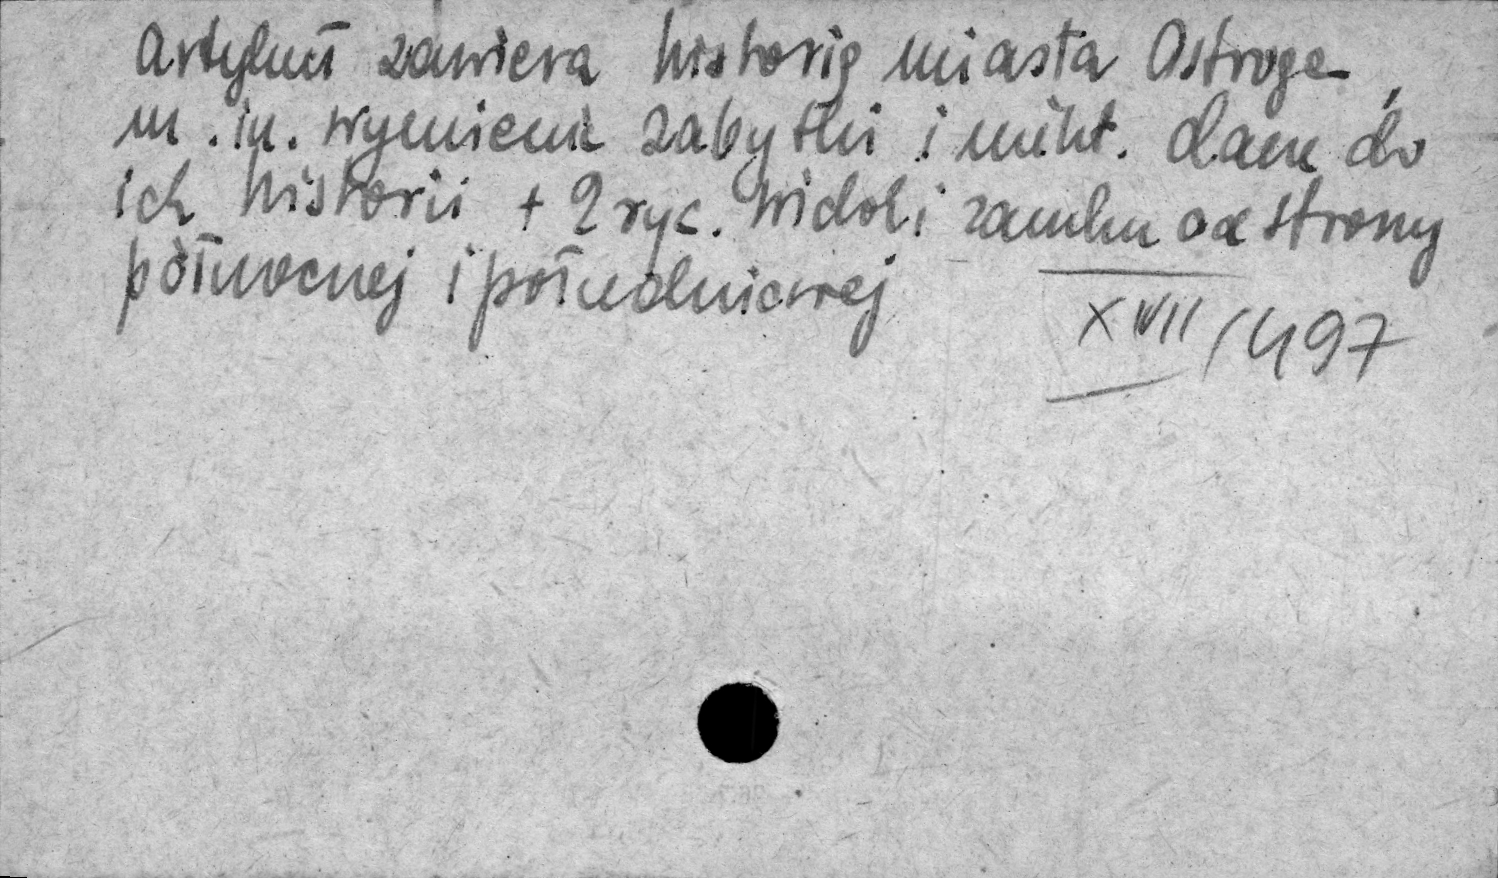 Artykuł zawiera historię miasta Ostroga,
m.in. wymienia zabytki i niekt. dane do
ich historii + 2 ryc. widoki zamku od strony
północnej i południowej
XVII/497